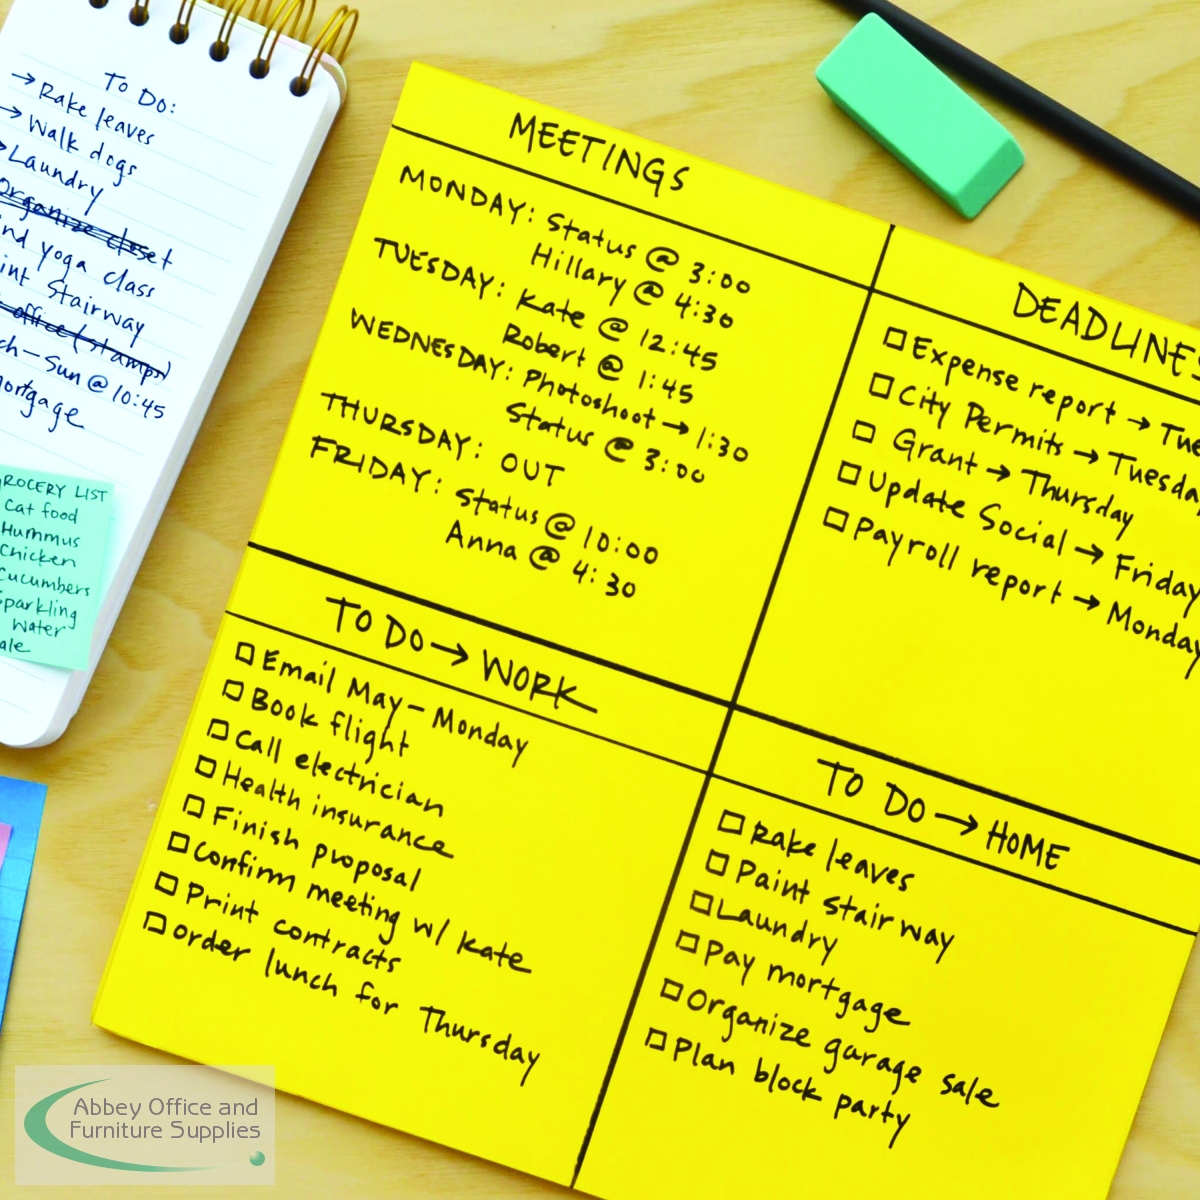 To Do:
→ Rake leaves
→ Walk dogs
→ Laundry
Organize closet
yoga class
Stairway
office (stamps)
Sun @ 10:45
mortgage
ROCERY LIST
Cat food
Hummus
Chicken
Cucumbers
Sparkling
Water
MEETINGS
MONDAY: Status @ 3:00
Hillary @ 4:30
TUESDAY: Kate @ 12:45
Robert @ 1:45
WEDNESDAY: Photoshoot → 1:30
Status @ 3:00
THURSDAY: OUT
FRIDAY: Status @ 10:00
Anna @ 4:30
DEADLINES
Expense report → Tue
City Permits → Tuesda
Grant → Thursday
Update Social → Friday
Payroll report → Monday
TO DO → WORK
Email May - Monday
Book flight
Call electrician
Health insurance
Finish proposal
Confirm meeting w/ Kate
Print contracts
Order lunch for Thursday
TO DO → HOME
Rake leaves
Paint stairway
Laundry
Pay mortgage
Organize garage sale
Plan block party
Abbey Office and
Furniture Supplies